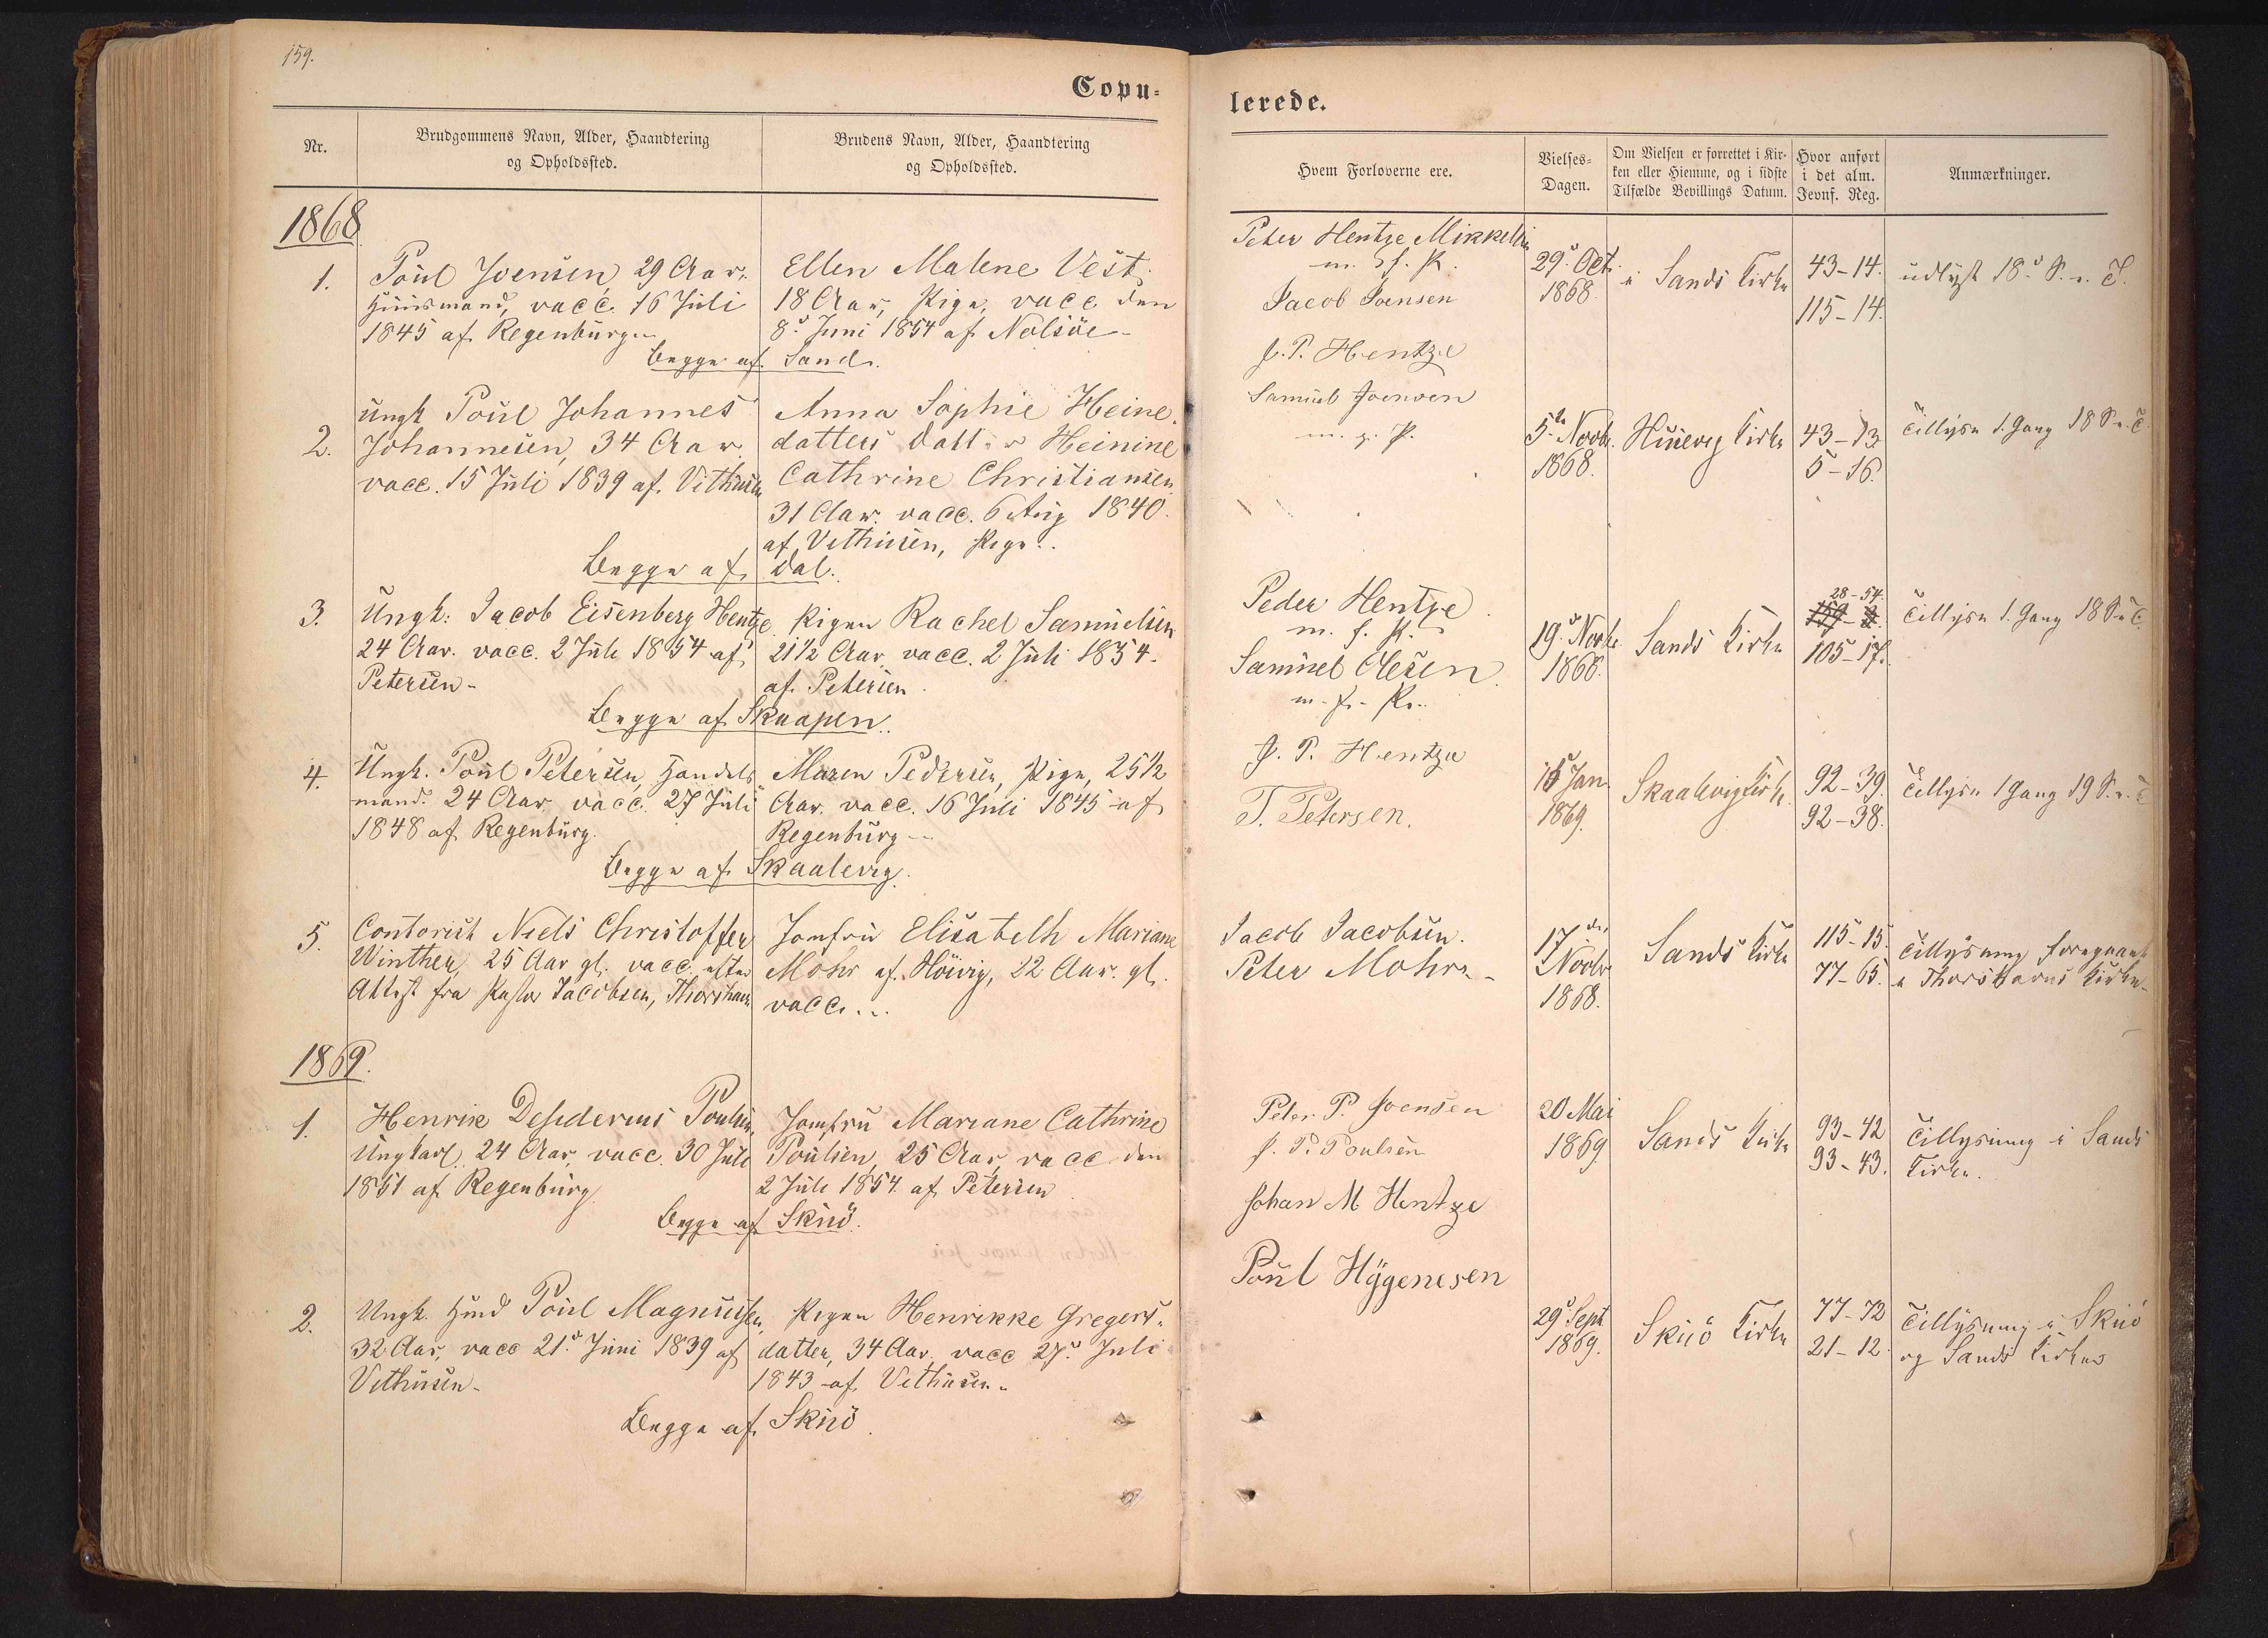 159.
Copu-
lerede.
Nr.
Brudgommens Navn, Alder, Haandtering
og Opholdssted.
Brudens Navn, Alder, Haandtering
og Opholdssted.
Hvem Forloverne ere.
Vielses-
Dagen.
Om Vielsen er forrettet i Kir-
ken eller Hiemme, og i sidste
Tilfælde Bevillings Datum.
Hvor anført
i det alm.
Jevnf. Reg.
Anmærkninger.
1868
1.
Poul Joensen, 29 Aar,
Huusmand, vacc. 16 Juli
1845 af Regenburg
Ellen Malene Vest,
18 Aar, Pige, vacc den
8d Juni 1854 af Nolsöe
Begge af Sand.
Peter Hentze Mikkelsen
m. f. P.
Jacob Joensen
29d Oct.
1868.
i Sands Kirke
43-14.
115-14.
udlyst 18d S. e. T.
2.
Ungk Poul Johannes
Johannesen, 34 Aar
vacc. 15 Juli 1839 af Vithusen
Anna Sophie Heine-
datters Datter Heinine
Cathrine Christiansen
31 Aar. vacc. 6 Aug 1840.
af Vithusen, Pige.
Begge af Dal.
J. P. Hentze
Samuel Joensen
m. f. P.
5te Novbr.
1868.
Husevig Kirke
43-13
5-16.
Tillyst 1. Gang 18 S. e. T.
3.
Ungk: Jacob Eisenberg Hentze
24 Aar. vacc. 2 Juli 1854 af
Petersen-
Pigen Rachel Samuelsen
21 1/2 Aar vacc. 2 Juli 1854.
af Petersen
Begge af Skaapen.
Peder Hentze
m. f. P.
Samuel Olesen
m. f. P.
19d Novbr
1868.
Sands Kirke
28-54.
105-17.
Tillyst 1. Gang 18 S. e. T.
4.
Ungk. Poul Petersen, Handels
mand. 24 Aar vacc. 27 Juli
1848 af Regenburg.
Maren Pedersen, Pige, 25 1/2
Aar. vacc. 16 Juli 1845 af
Regenburg
Begge af Skaalevig.
J. P. Hentze
T. Petersen.
15 Jan.
1869.
Skaalevig Kirke
92-39.
92-38.
Tillyst 1 Gang 19 S. e. T.
5.
Contorist Niels Christoffer
Winther, 25 Aar gl. vacc. efter
Attest fra Pastor Jacobsen, Thorshavn
Jomfru Elisabeth Mariane
Mohr af Höivig, 22 Aar. gl.
vacc.
Jacob Jacobsen.
Peter Mohr
17de
Novbr
1868.
Sands Kirke
115-15.
77-65.
Tillysning foregaaet
i Thorshavns Kirke.
1869.
1.
Henrik Desiderius Poulsen.
Ungkarl. 24 Aar, vacc. 30 Juli
1851 af Regenburg
Jomfru Mariane Cathrine
Poulsen, 25 Aar, vacc den
2 Juli 1854. af Petersen
Begge af Skuö.
Peter P. Joensen
J. P. Poulsen
20 Mai
1869
Sands Kirke
93-42
93-43.
Tillysning i Sands
Kirke.
2.
Ungk. Poul Magnussen,
32 Aar, vacc 21d Juni 1839 af
Vithusen-
Pigen Henrikke Gregers-
datter, 34 Aar, vacc 27d Juli
1843 af Vithusen.
Begge af Skuö.
Johan M Hentze
Poul Hÿgenesen
29d Sept
1869.
Skuö Kirke
77-72
21-12.
Tillysning i Skuö
og Sands Kirker